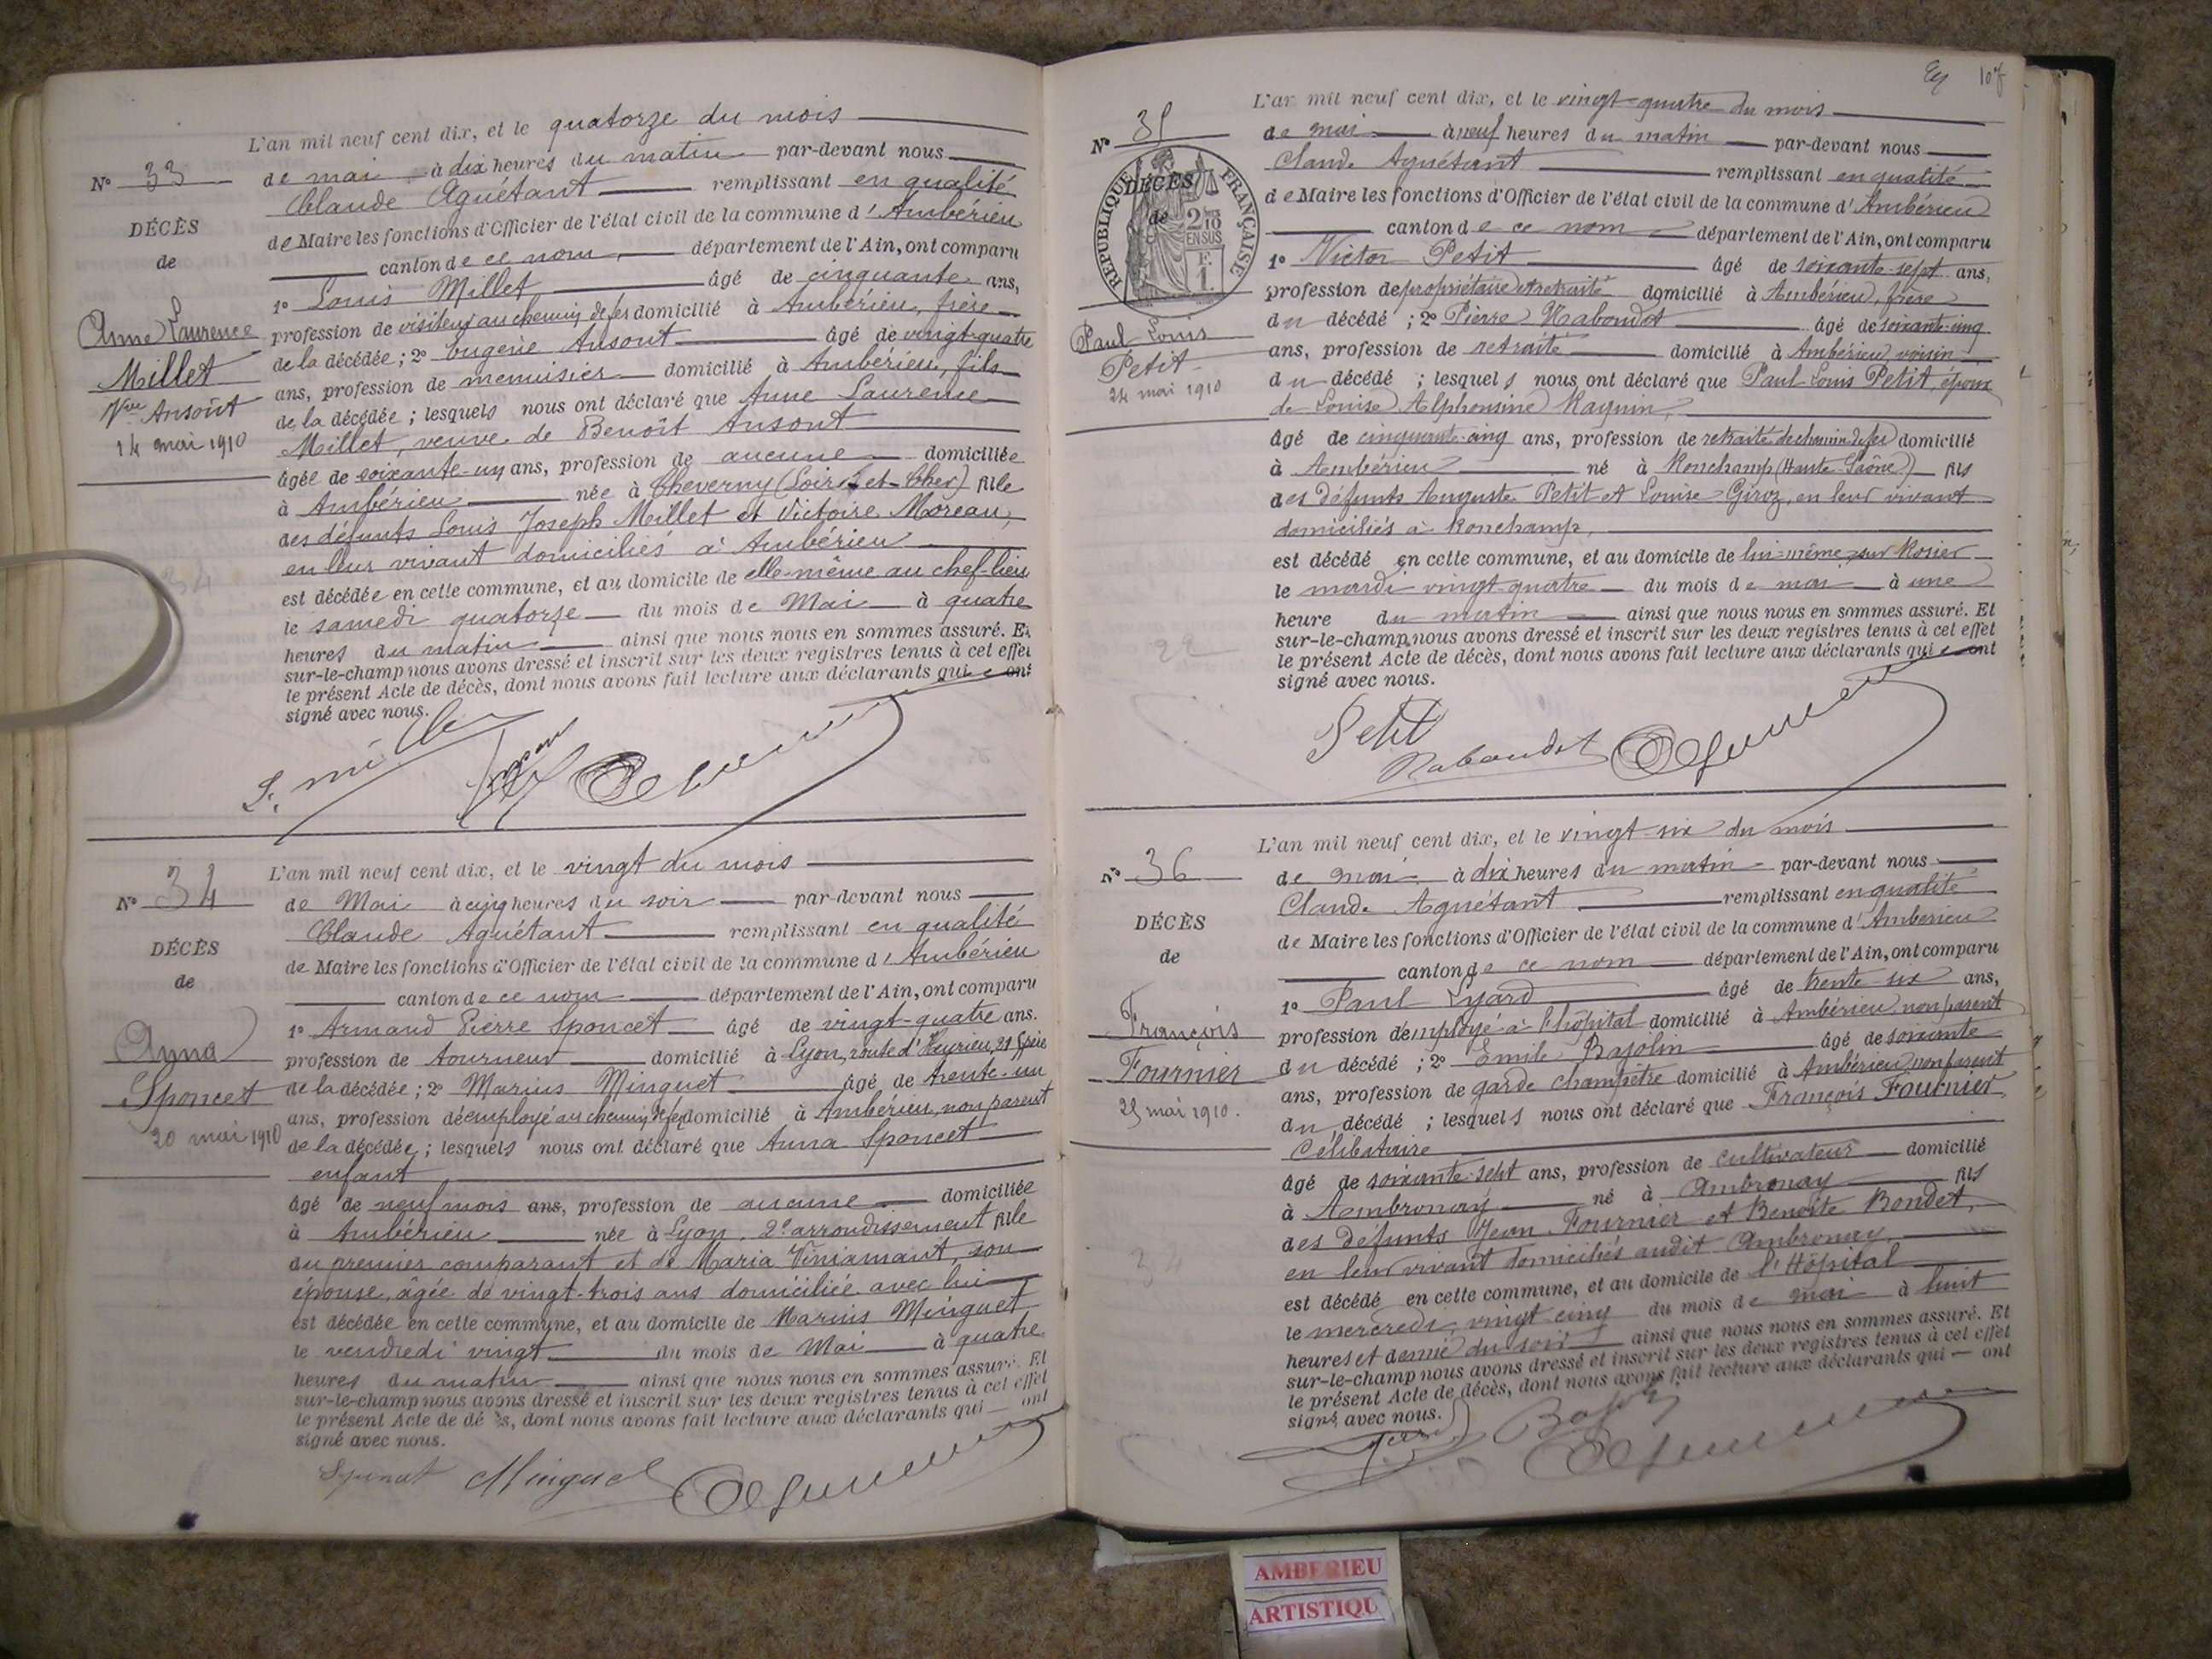 L'an mil neuf cent dix, et le quatorze du mois
N° 33
de mai à dix heures du matin par-devant nous
Claude Aguétant remplissant en qualité
DÉCÈS
de Maire les fonctions d'Officier de l'état civil de la commune d'Ambérieu
de
canton de ce nom département de l'Ain, ont comparu
1° Louis Millet âgé de cinquante ans,
Anne Laurence
profession de visiteur au chemin de fer domicilié à Ambérieu, frère
de la décédée ; 2° Eugène Ansout âgé de vingt-quatre
Millet
ans, profession de menuisier domicilié à Ambérieu, fils
Vve Ansout
de la décédée ; lesquels nous ont déclaré que Anne Laurence
14 mai 1910
Millet, veuve de Benoît Ansout
âgée de soixante-un ans, profession de aucune domiciliée
à Ambérieu née à Cheverny (Loir-et-Cher) fille
des défunts Louis Joseph Millet et Victoire Moreau,
en leur vivant domiciliés à Ambérieu
est décédée en cette commune, et au domicile de elle-même au chef-lieu
le samedi quatorze du mois de Mai à quatre
heures du matin ainsi que nous nous en sommes assuré. Et
sur-le-champ nous avons dressé et inscrit sur les deux registres tenus à cet effet
le présent Acte de décès, dont nous avons fait lecture aux déclarants qui ont
signé avec nous.
L'an mil neuf cent dix, et le vingt du mois
N° 34
de Mai à cinq heures du soir par-devant nous
Claude Aguétant remplissant en qualité
DÉCÈS
de Maire les fonctions d'Officier de l'état civil de la commune d'Ambérieu
de
canton de ce nom département de l'Ain, ont comparu
1° Armand Pierre Sponcet âgé de vingt-quatre ans.
Anna
profession de tourneur domicilié à Lyon, route d'Heyrieu, 21 père
Sponcet
de la décédée ; 2° Marius Minguet âgé de trente-un
20 mai 1910
ans, profession d'employé au chemin de fer domicilié à Ambérieu, non parent
de la décédée ; lesquels nous ont déclaré que Anna Sponcet
enfant
âgé de neuf mois ans, profession de aucune domiciliée
à Ambérieu née à Lyon, 2e arrondissement fille
du premier comparant et de Maria Viniamant, son
épouse, âgée de vingt-trois ans domiciliée avec lui
est décédée en cette commune, et au domicile de Marius Minguet
le vendredi vingt du mois de Mai à quatre
heures du matin ainsi que nous nous en sommes assuré. Et
sur-le-champ nous avons dressé et inscrit sur les deux registres tenus à cet effet
le présent Acte de décès, dont nous avons fait lecture aux déclarants qui ont
signé avec nous.
Sponcet Minguet
107
L'an mil neuf cent dix, et le vingt-quatre du mois
N° 35
de mai à neuf heures du matin par-devant nous
Claude Aguétant remplissant en qualité
RÉPUBLIQUE FRANÇAISE
DÉCÈS
de
2/10 EN SUS
F. 1.
de Maire les fonctions d'Officier de l'état civil de la commune d'Ambérieu
canton de ce nom département de l'Ain, ont comparu
1° Victor Petit âgé de soixante-sept ans,
profession de propriétaire et retraité domicilié à Ambérieu, frère
Paul-Louis
du décédé ; 2° Pierre Raboudot âgé de soixante-cinq
Petit
ans, profession de retraité domicilié à Ambérieu, voisin
24 mai 1910
du décédé ; lesquels nous ont déclaré que Paul-Louis Petit, époux
de Louise Alphonsine Raguin,
âgé de cinquante-cinq ans, profession de retraité de chemin de fer domicilié
à Ambérieu né à Ronchamp (Haute-Saône) fils
des défunts Auguste Petit et Louise Giroz, en leur vivant
domiciliés à Ronchamp,
est décédé en cette commune, et au domicile de lui-même sur Rosier
le mardi vingt-quatre du mois de mai à une
heure du matin ainsi que nous nous en sommes assuré. Et
sur-le-champ nous avons dressé et inscrit sur les deux registres tenus à cet effet
le présent Acte de décès, dont nous avons fait lecture aux déclarants qui ont
signé avec nous.
Petit
Raboudot
L'an mil neuf cent dix, et le vingt-six du mois
N° 36
de mai à dix heures du matin par-devant nous
Claude Aguétant remplissant en qualité
DÉCÈS
de Maire les fonctions d'Officier de l'état civil de la commune d'Ambérieu
de
canton de ce nom département de l'Ain, ont comparu
1° Paul Lyard âgé de trente-six ans,
François
profession d'employé à l'hôpital domicilié à Ambérieu, non parent
Fournier
du décédé ; 2° Emile Bajolin âgé de soixante
25 mai 1910.
ans, profession de garde champêtre domicilié à Ambérieu, non parent
du décédé ; lesquels nous ont déclaré que François Fournier,
Célibataire
âgé de soixante-sept ans, profession de cultivateur domicilié
à Ambronay né à Ambronay fils
des défunts Jean Fournier et Benoîte Bondet,
en leur vivant domiciliés audit Ambronay,
est décédé en cette commune, et au domicile de l'Hôpital
le mercredi, vingt-cinq du mois de mai à huit
heures et demie du soir ainsi que nous nous en sommes assuré. Et
sur-le-champ nous avons dressé et inscrit sur les deux registres tenus à cet effet
le présent Acte de décès, dont nous avons fait lecture aux déclarants qui ont
signé avec nous.
AMBERIEU
ARTISTIQU